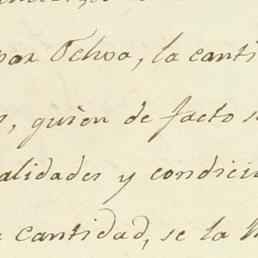 par Ochoa, la canti
, quien de facto s
alidades y condici
cantidad, se la